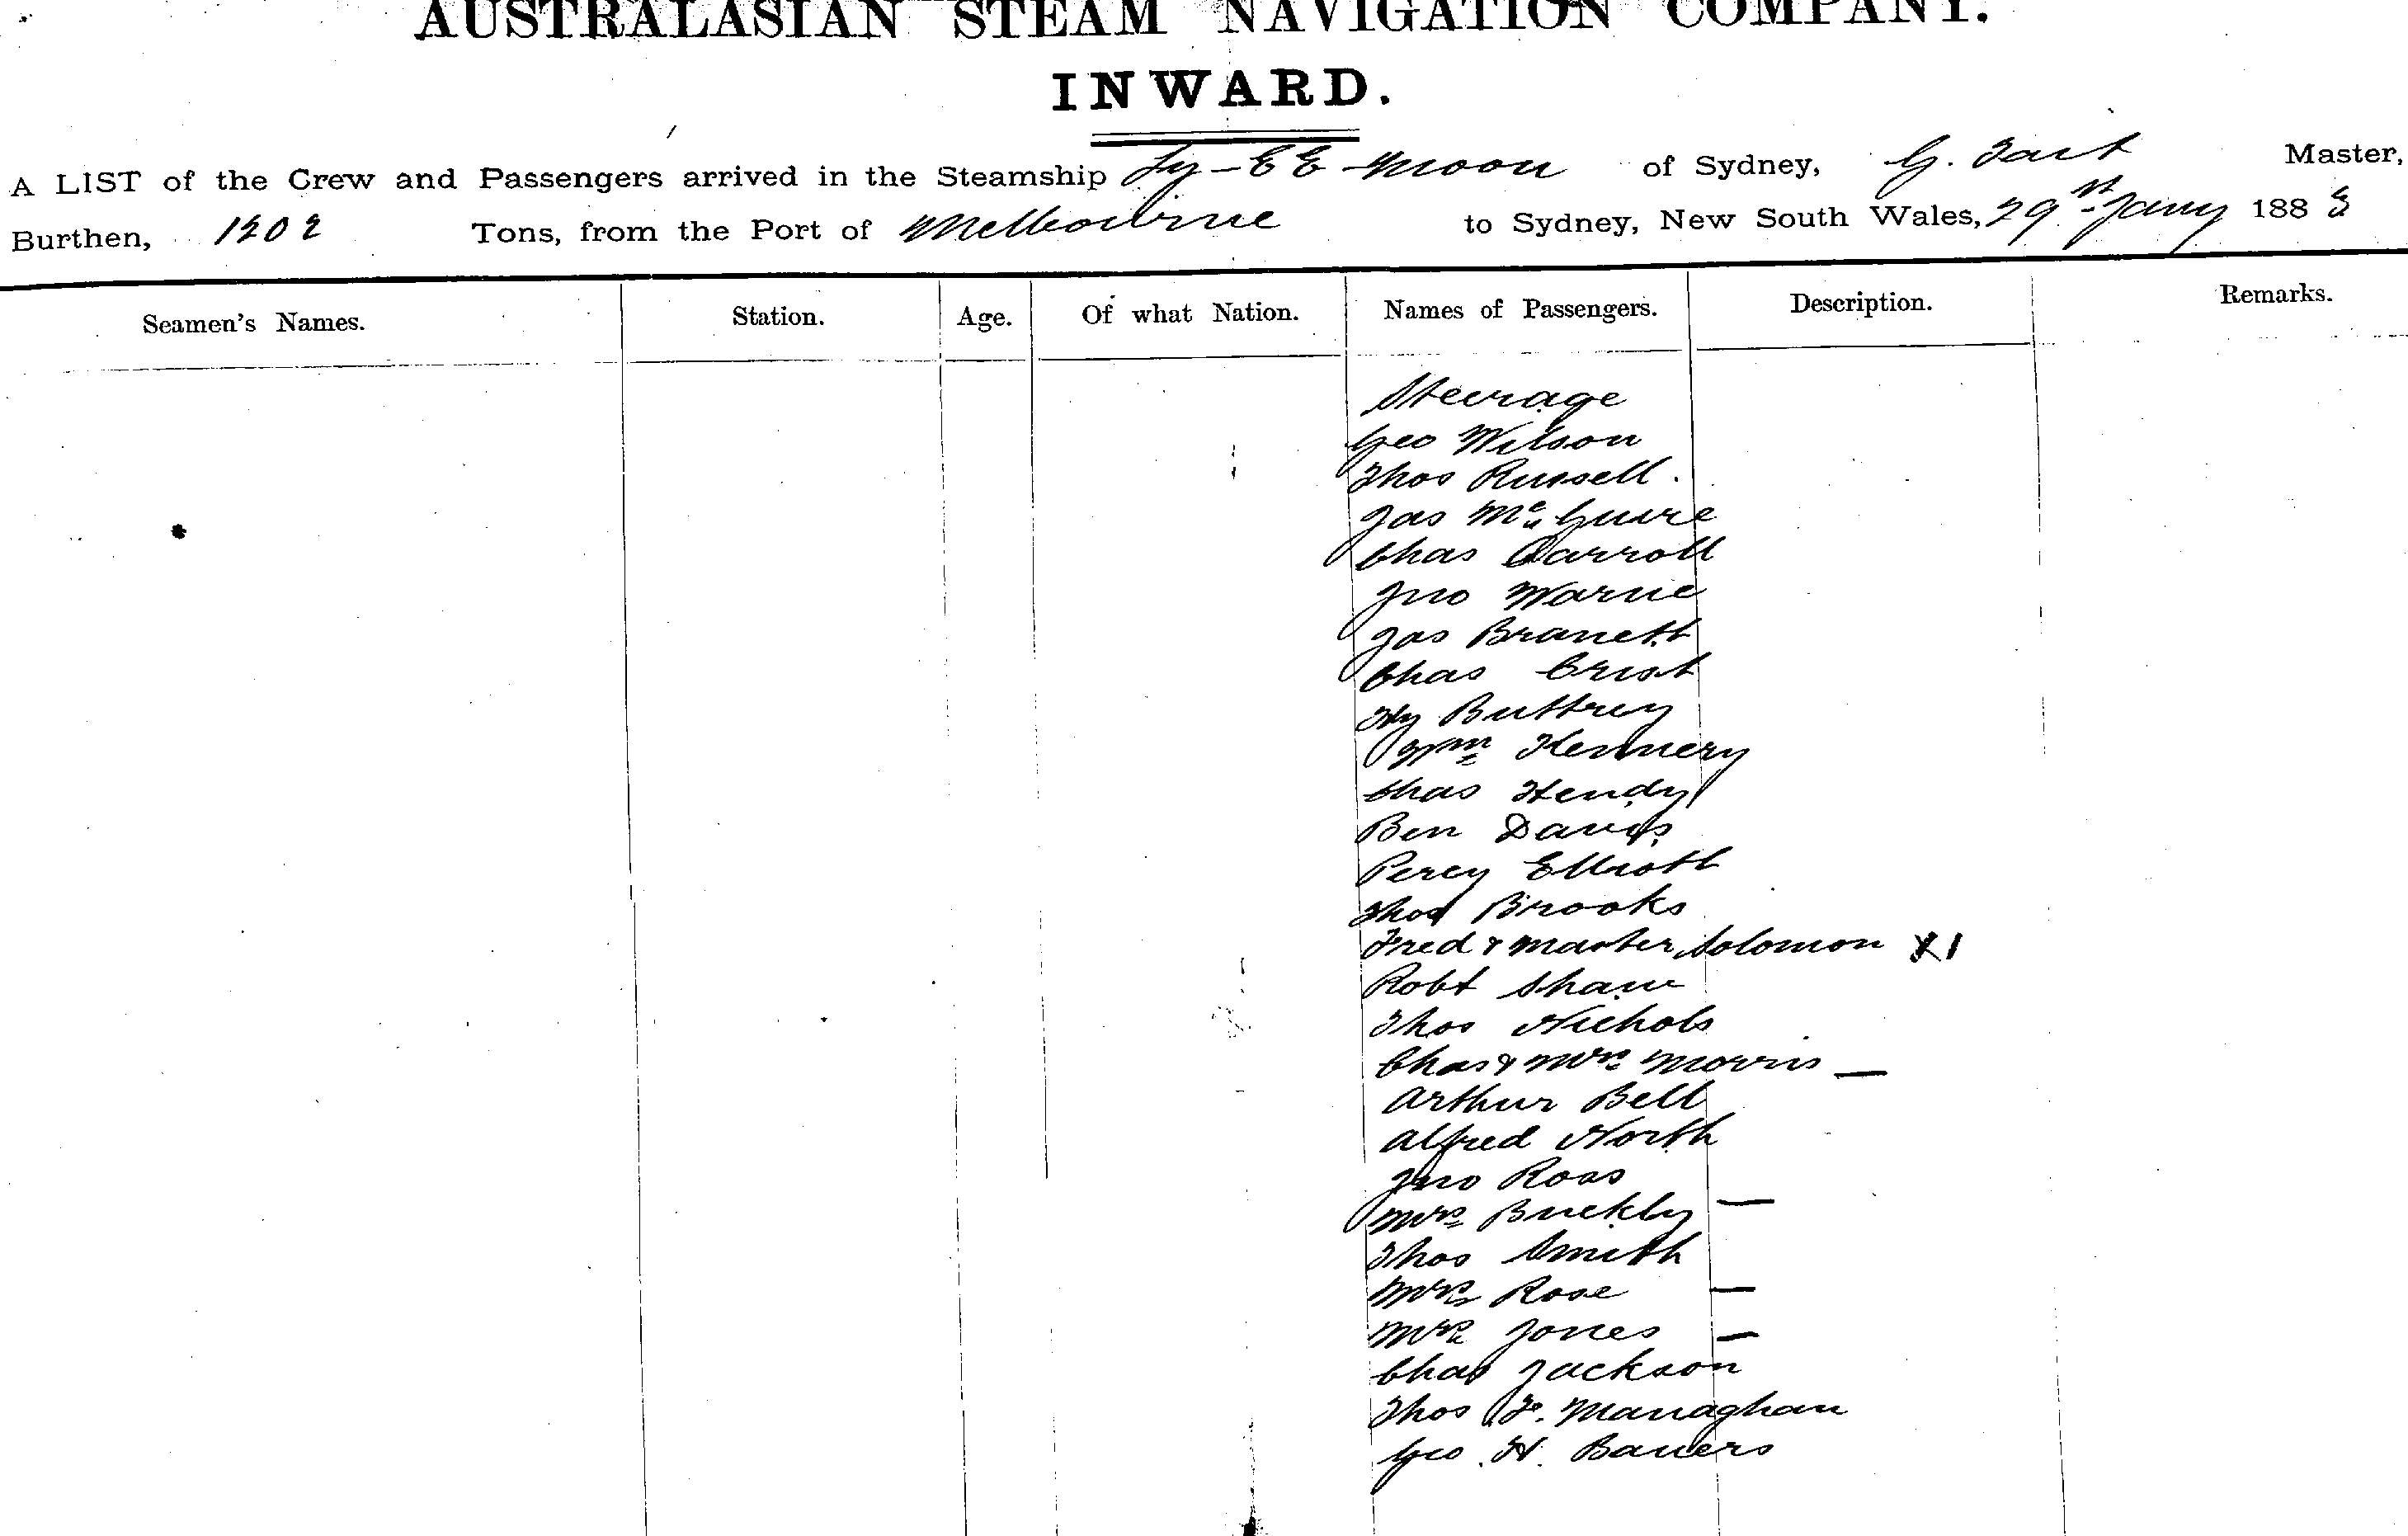 AUSTRALASIAN STEAM NAVIGATION COMPANY.
INWARD.
A LIST of the Crew and Passengers arrived in the Steamship Ly-EE-Moon of Sydney, G. Tait Master,
Burthen, 1202 Tons, from the Port of Melbourne to Sydney, New South Wales, 29st Jany 1883
Seamen's Names. Station. Age. Of what Nation. Names of Passengers. Description. Remarks.
Steerage
Geo Wilson
Thos Russell.
Jas McGuire
Chas Carroll
Jno Warne
Jas Branett
Chas Crist
Hy Buttrey
Wm Hennery
Chas Hendy
Ben Davis
Percy Elliott
Thos Brooks
Fred & Master Solomon X1
Robt Shaw
Thos Nichols
Chas & Mrs Morris —
Arthur Bell
Alfred North
Jno Ross
Mrs Buckly —
Thos Smith
Mrs Rose —
Mrs Jones —
Chas Jackson
Thos F. Managhan
Geo. H. Bauers